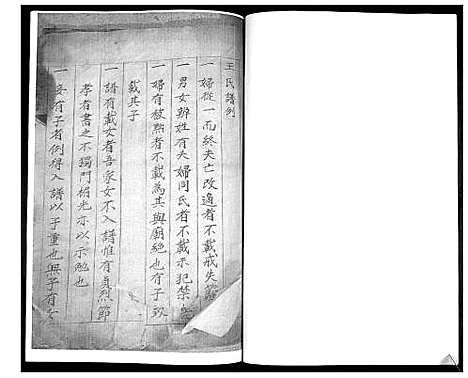 王氏譜例
一婦從一而終夫亡改適者不載戒失節
一男女辨姓有夫婦同氏者不載示犯禁
一婦有被黜者不載為其與廟絕也有子致
載其子
一譜有載女者吾家女不入譜惟有貞烈節
孝者書之不獨門楣光亦以示勉也
一妾有子者例得入譜以子重也無子有女